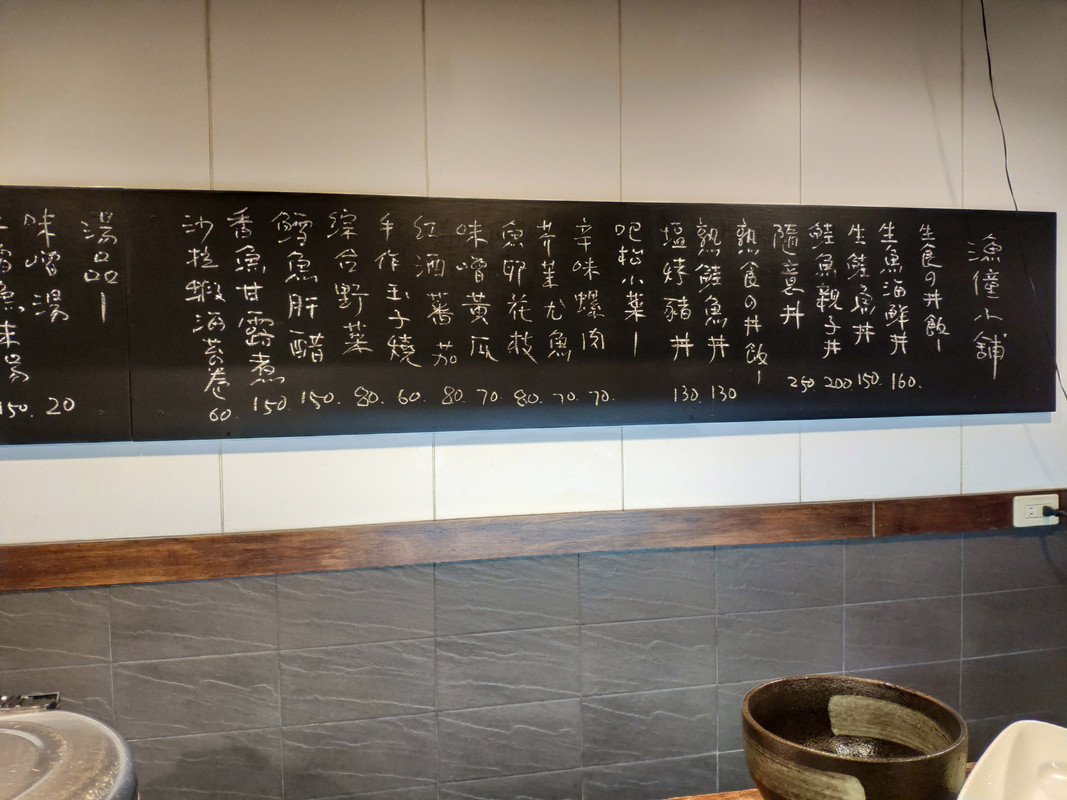 漁僮小舖
生食の丼飯ー
生魚海鮮丼 160.
生鮭魚丼 150.
鮭魚親子丼 200
隨意丼 250
熟食の丼飯ー
熟鮭魚丼 130
塩烤豬丼 130
吧檯小菜ー
辛味螺肉 70.
芥茉尤魚 70.
魚卵花枝 80.
味噌黃瓜 70.
紅酒蕃茄 80.
手作玉子燒 60.
綜合野菜 80.
鱈魚肝醋 150.
香魚甘露煮 150
沙拉蝦海苔卷 60.
湯品ー
味噌湯 20
魚味湯 150.